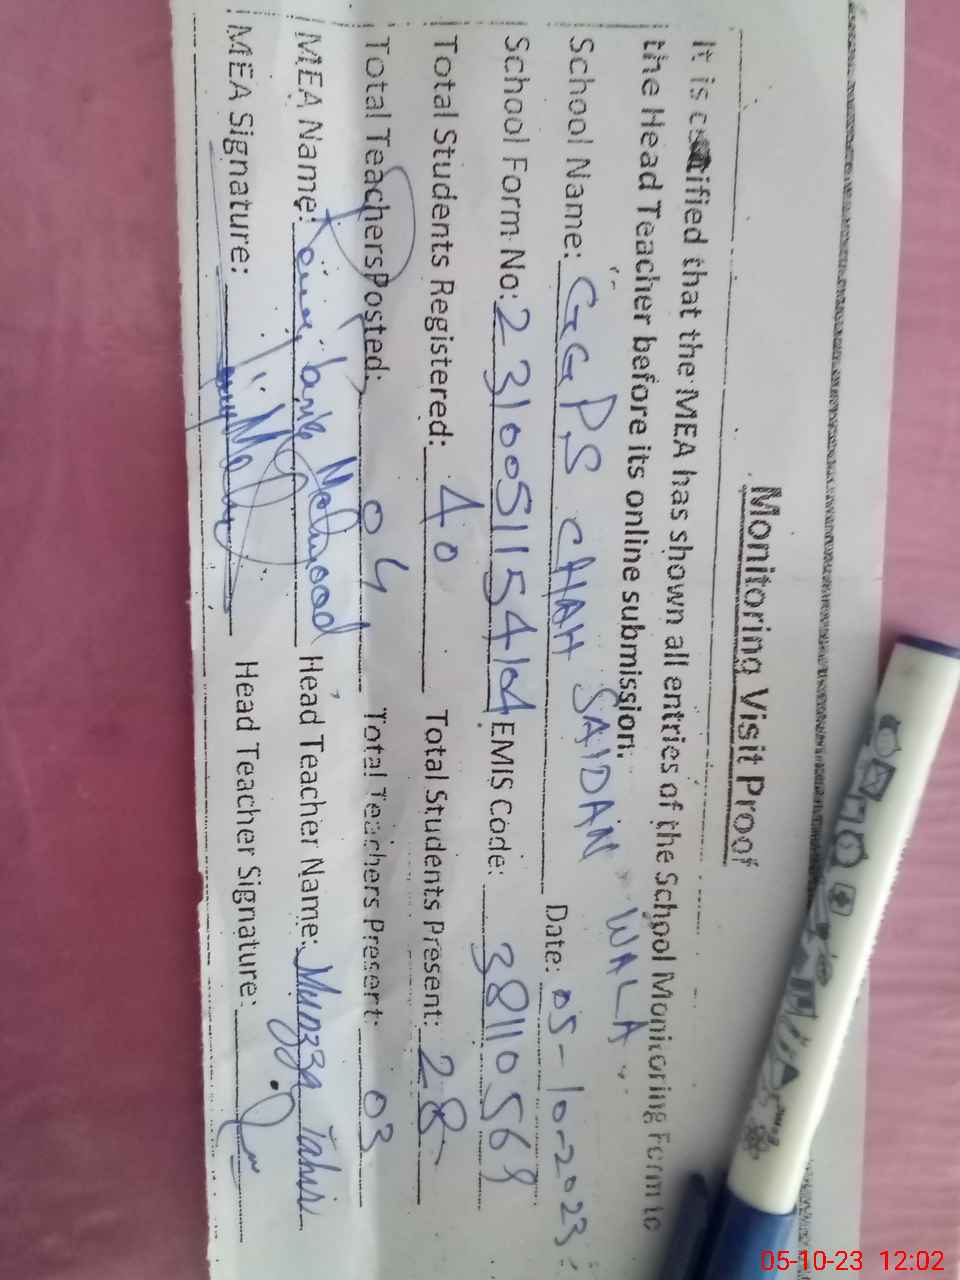 Monitoring Visit Proof
It is certified that the MEA has shown all entries of the School Monitoring Form to
the Head Teacher before its online submission.
School Name: GGPS CHAH SAIDAN WALA Date: 05-10-2023
School Form No: 2310051154104 EMIS Code: 38110569
Total Students Registered: 40 Total Students Present: 28
Total Teachers Posted: 04 Total Teachers Present: 03
MEA Name: Mahmood Head Teacher Name: Munzza Tahir
MEA Signature: Head Teacher Signature:
05-10-23 12:02